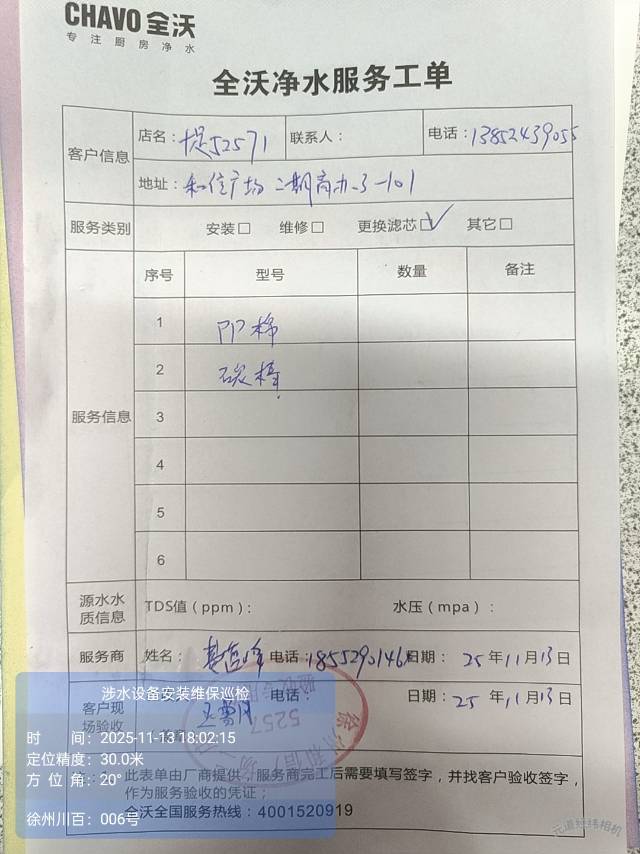 CHAVO 全沃
专注厨房净水
全沃净水服务工单
客户信息
店名：堤52571 联系人： 电话：13852439055
地址：和信广场 二期商办-3-101
服务类别 安装□ 维修□ 更换滤芯□✓ 其它□
服务信息
序号 型号 数量 备注
1 PP棉
2 碳棒
3
4
5
6
源水水质信息 TDS值（ppm）： 水压（mpa）：
服务商 姓名： 电话： 日期：25年11月13日
客户现场验收 电话： 日期：25年11月13日
此表单由厂商提供，服务商完工后需要填写签字，并找客户验收签字，
作为服务验收的凭证；
全沃全国服务热线：4001520919
涉水设备安装维保巡检
时间：2025-11-13 18:02:15
定位精度：30.0米
方位角：20°
徐州川百：006号
元道经纬相机